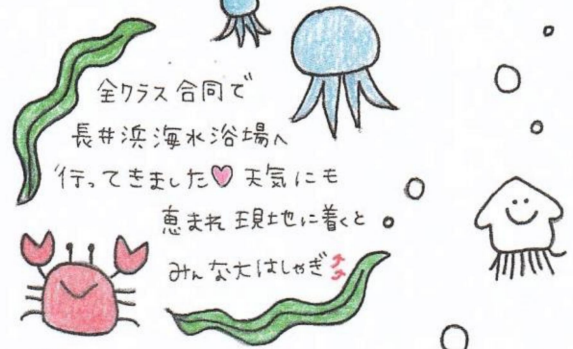 全クラス合同で
長井浜海水浴場へ
行ってきました♡ 天気にも
恵まれ 現地に着くと
みんな大はしゃぎ⤴⤴